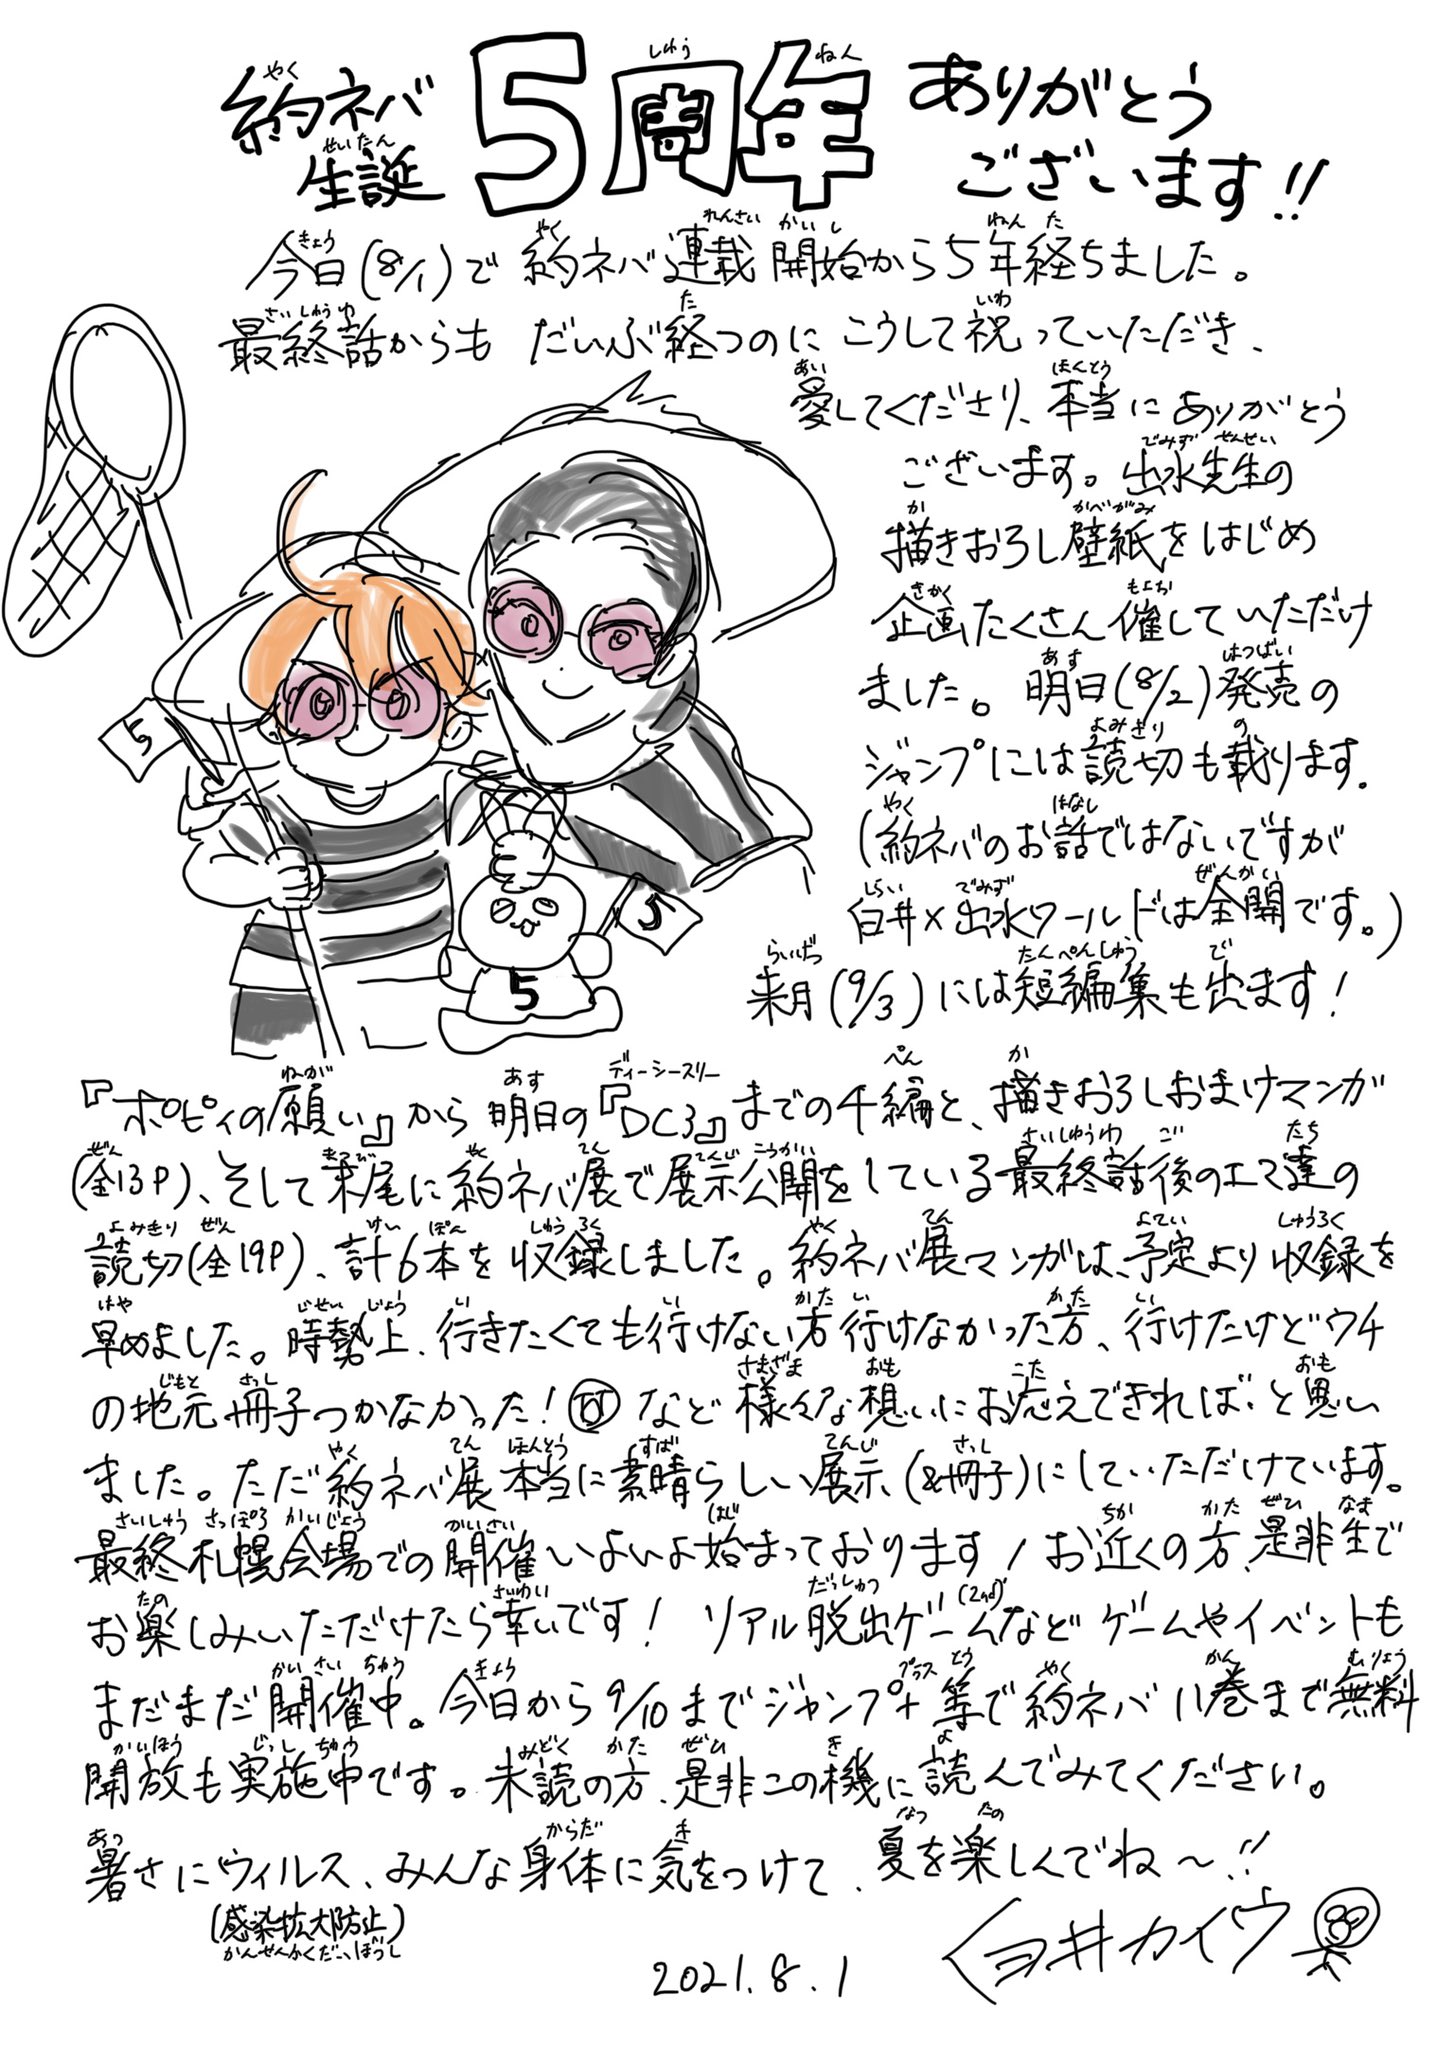 約ネバ 生誕 5周年 ありがとうございます!!
今日(8/1)で 約ネバ連載 開始から5年経ちました。
最終話からも だいぶ経つのに こうして祝っていただき、
愛してくださり、本当に ありがとう
ございます。出水先生の
描きおろし壁紙をはじめ
企画たくさん催していただけ
ました。明日(8/2)発売の
ジャンプには読切も載ります。
(約ネバのお話ではないですが
白井×出水ワールドは全開です。)
来月(9/3)には短編集も出ます!
5
5
5
『ポピィの願い』から 明日の『DC3』までの4編と、描きおろしおまけマンガ
(全13P)、そして末尾に約ネバ展で展示公開をしている最終話後のエマ達の
読切(全19P)、計6本を収録しました。約ネバ展マンガは、予定より収録を
早めました。時勢上、行きたくても行けない方 行けなかった方、行けたけどウチ
の地元 冊子つかなかった! など 様々な想いにお応えできれば、と思い
ました。ただ約ネバ展 本当に素晴らしい展示(&冊子)にしていただけています。
最終札幌会場での開催いよいよ始まっております!お近くの方、是非生で
お楽しみいただけたら幸いです! リアル脱出ゲーム(2nd)など ゲームやイベントも
まだまだ開催中。今日から9/10までジャンプ+等で約ネバ11巻まで無料
開放も実施中です。未読の方、是非この機に読んでみてください。
暑さにウィルス、みんな身体に気をつけて、夏を楽しんでね〜!!
(感染拡大防止)
白井カイウ
2021.8.1